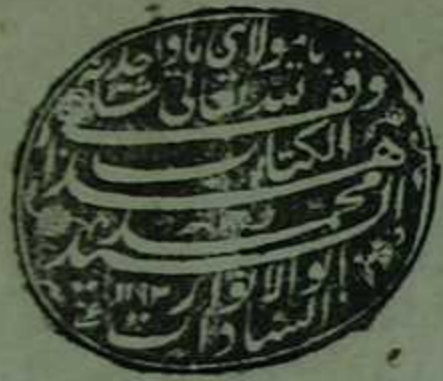 يا مولاي يا واحد
وقف لله تعالى شانه
هذا الكتاب
السيد محمد
ابو الانوار ١١٩٢
السادات